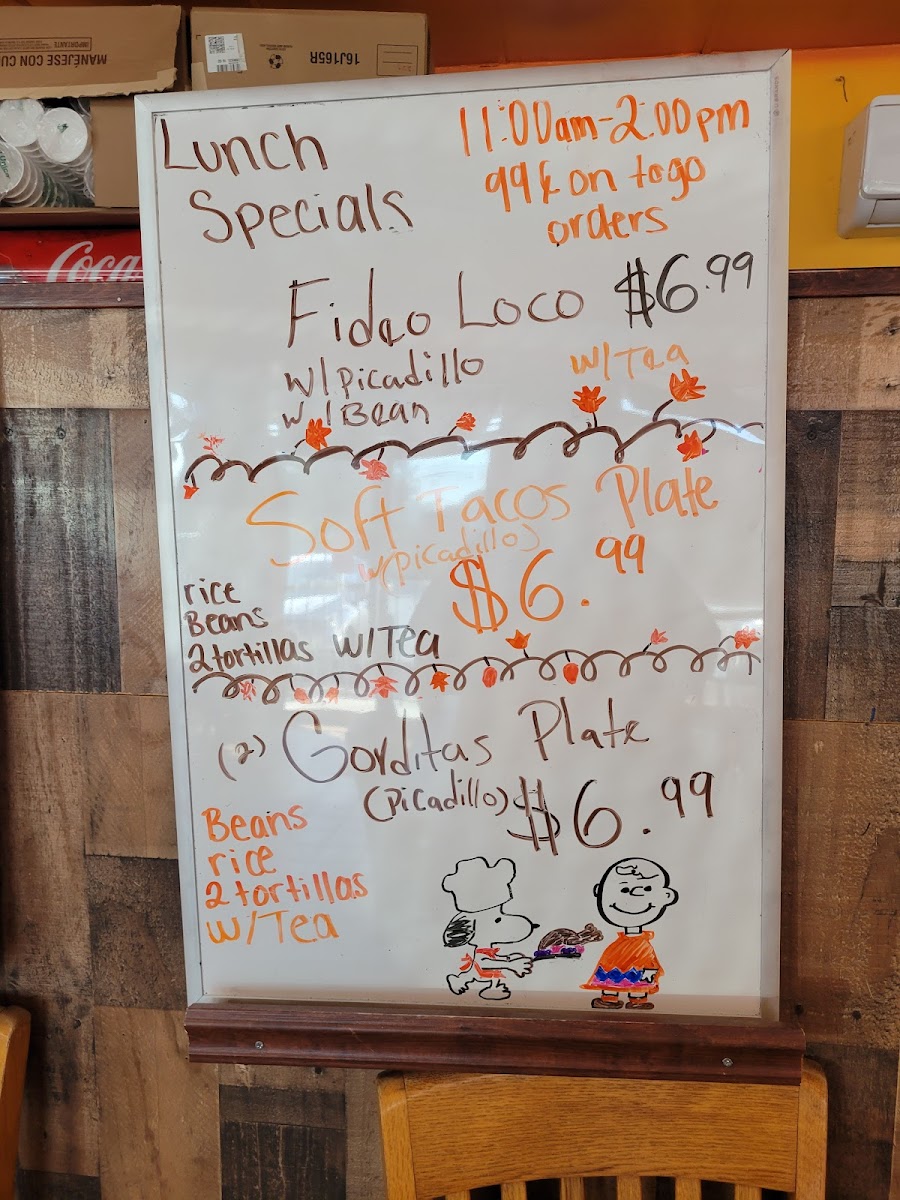 MANÉJESE CON CU
IMPORTANTE
16J165R
Coca
Lunch
Specials
11:00am-2:00pm
99¢ on togo
orders
Fideo Loco $6.99
w/picadillo
w/Bean
w/Tea
Soft Tacos Plate
w(picadillo)
$6.99
rice
Beans
2tortillas w/Tea
(2) Gorditas Plate
(Picadillo) $6.99
Beans
rice
2tortillas
w/Tea